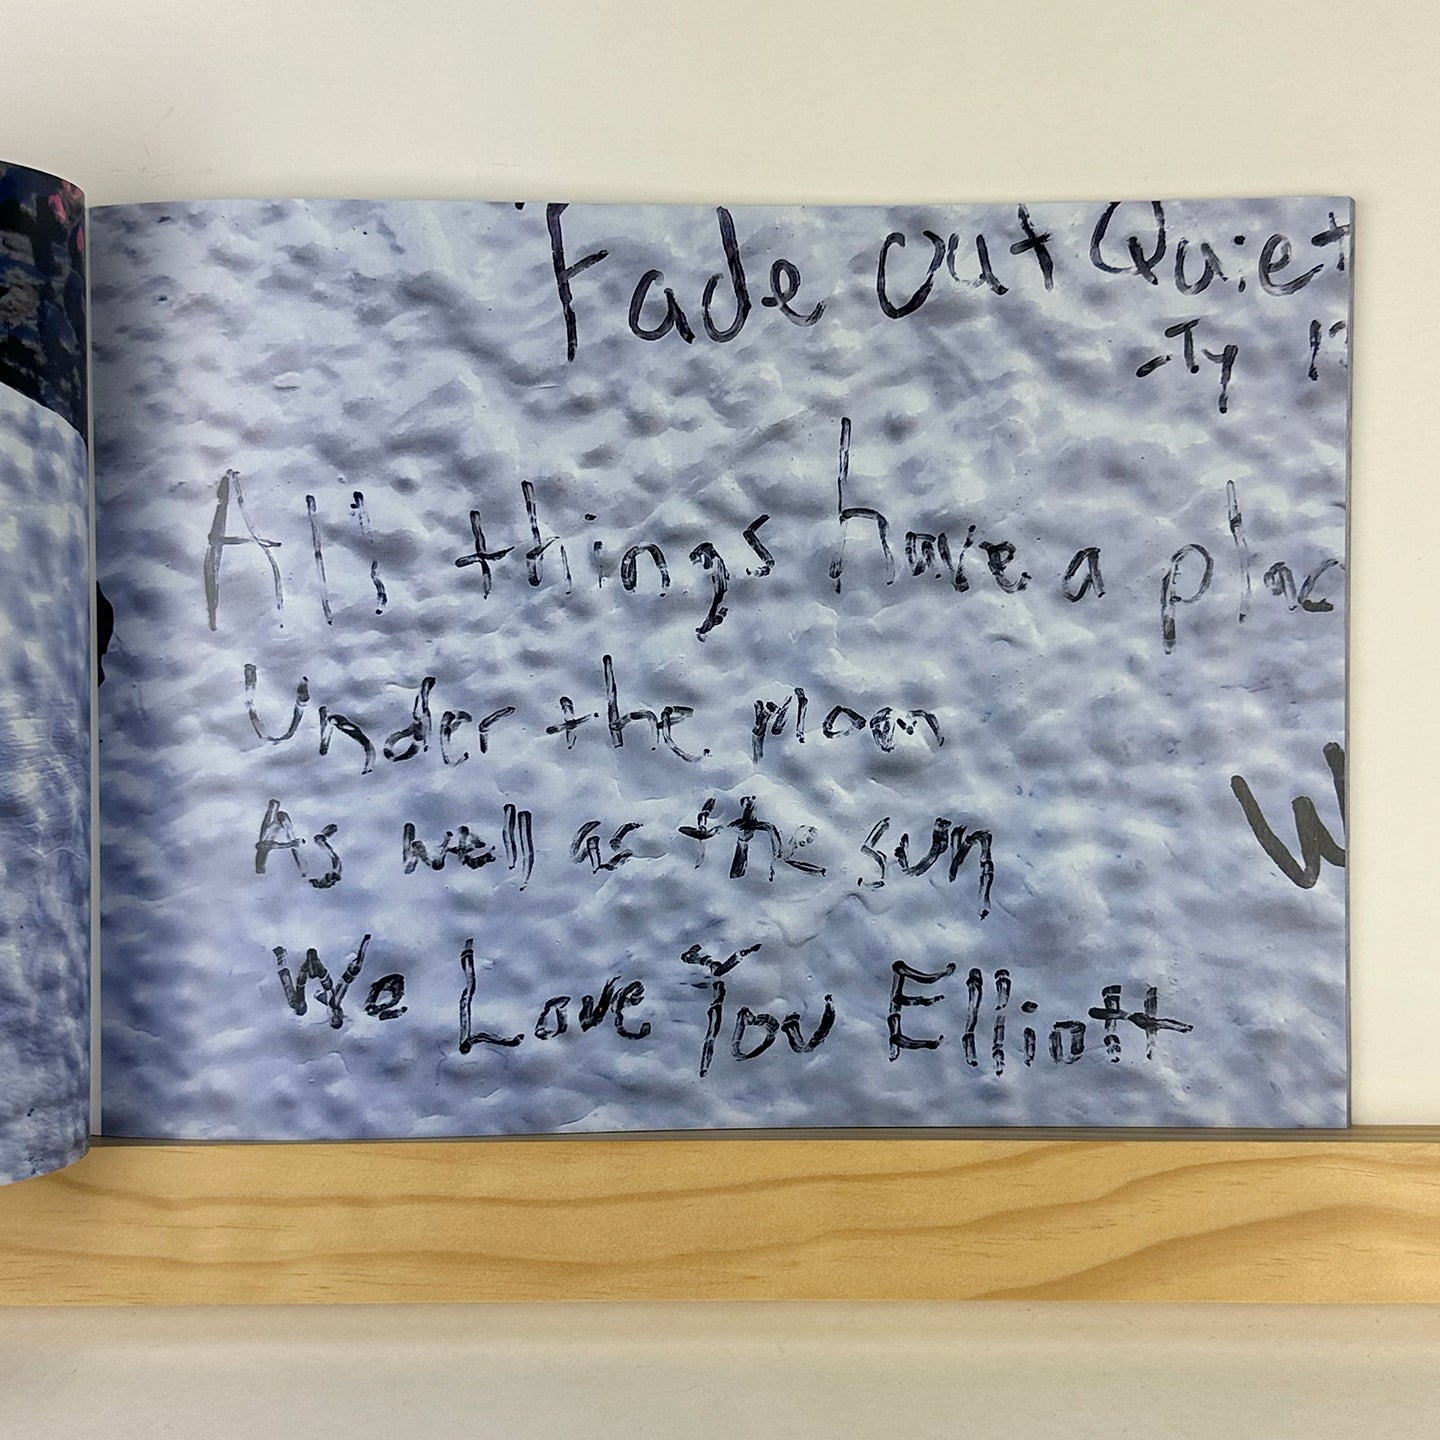 Fade Out Quiet
-Ty 13
All things have a plac
Under the moon
As well as the sun
We Love You Elliott
W